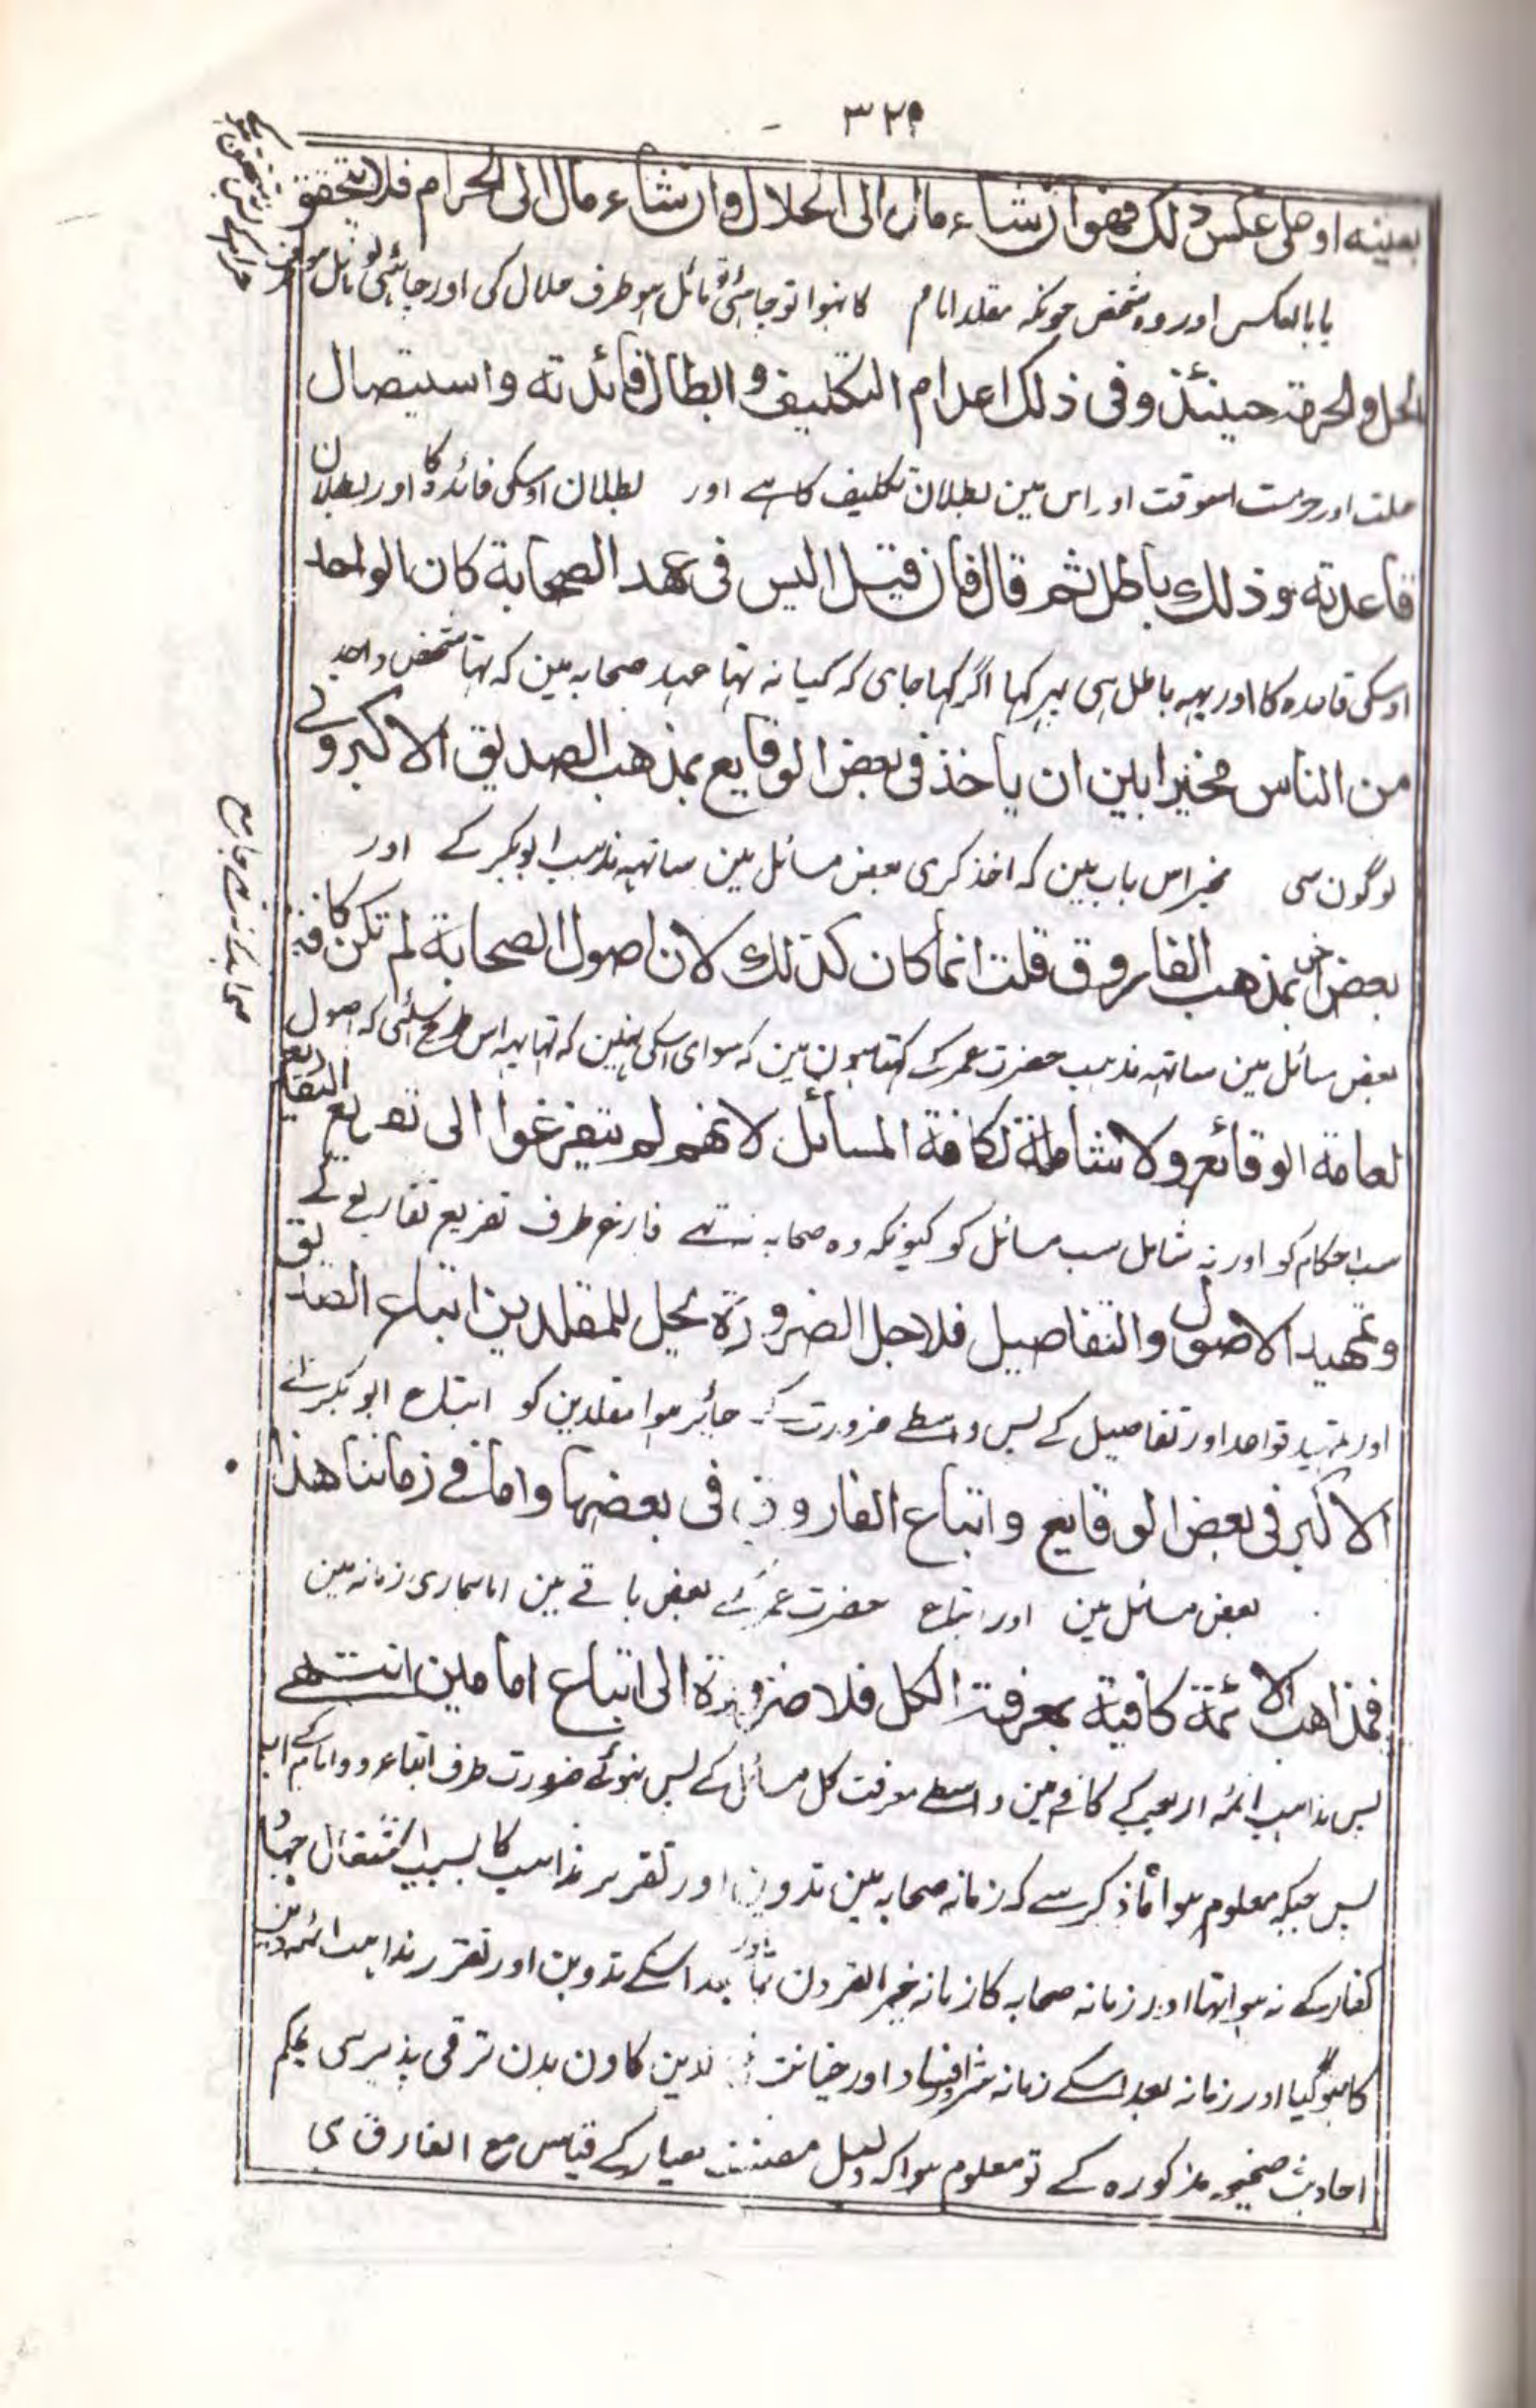 بعينه او على عكس ذلك فهو ان شاء مال الى الحلال وان شاء مال الى الحرام فلا يتحقق
يا بالعكس اور وہ شخص جونکہ مقلد امام کا نہوا تو چاہئی تو مائل ہو طرف حلال کی اور چاہئی تو مائل
الحل والحرمة حينئذ وفى ذلك اعدام التكليف و ابطال فائدته واستيصال
حلت اور حرمت اسوقت اور اس مین بطلان تکلیف کا ہے اور بطلان اوسکی فائدہ کا اور بطلان
قاعدته وذلك باطل ثم قال فان قيل اليس فى عهد الصحابة كان الواحد
اوسکی قاعدہ کا اور یہہ باطل ہی پہر کہا اگر کہا جای کہ کیا نہ تہا عہد صحابہ مین کہ تہا شخص واحد
من الناس مخيرا بين ان ياخذ فى بعض الوقايع بمذهب الصديق الاكبر وفى
لوگون سی مخیر اس باب مین کہ اخذ کری بعض مسائل مین ساتہہ مذہب ابوبکر کے اور
بعض اخر بمذهب الفاروق قلت انما كان كذلك لان اصول الصحابة لم تكن كافية
بعض مسائل مین ساتہہ مذہب حضرت عمر کے کہتا ہون مین کہ سوای اسکی نہین کہ تہا یہہ اس طرح اسلئی کہ اصول
لعامة الوقائع ولا شاملة لكافة المسائل لانهم لم يتفرغوا الى تفريع التفاريع
سب احکام کو اور نہ شامل سب مسائل کو کیونکہ وہ صحابہ نہ تہے فارغ طرف تفریع تفاریع کے
وتمهيد الاصول والتفاصيل فلاجل الضرورة يحل للمقلدين اتباع الصديق
اور تمہید قواعد اور تفاصیل کے پس واسطے ضرورت کے جائز ہوا مقلدین کو اتباع ابوبکر کے
الاكبر فى بعض الوقايع واتباع الفاروق فى بعضها واما فى زماننا هذا
بعض مسائل مین اور اتباع حضرت عمر کے بعض باقے مین اما ہماری زمانہ مین
فمذاهب الائمة كافية بمعرفة الكل فلا ضرورة الى اتباع امامين انتهى
پس مذاہب ائمہ اربعہ کے کافے ہین واسطے معرفت کل مسائل کے پس نہوئے ضرورت طرف اتباع دو امام کے
پس جبکہ معلوم ہوا ذکر سے کہ زمانہ صحابہ مین تدوین اور تقریر مذاہب کا بسبب اشتغال جہاد
کفار کے نہ ہوا تہا اور زمانہ صحابہ کا زمانہ خیر القرون تہا اور بعد اسکے تدوین اور تقرر مذاہب ائمہ دین
کا ہوگیا اور زمانہ بعد اسکے زمانہ شر و فساد اور خیانت دین کا دن بدن ترقی پذیر سی بحکم
احادیث صحیحہ مذکورہ کے تو معلوم ہوا کہ دلیل مصنف معیار کے قیاس مع الفارق ہی